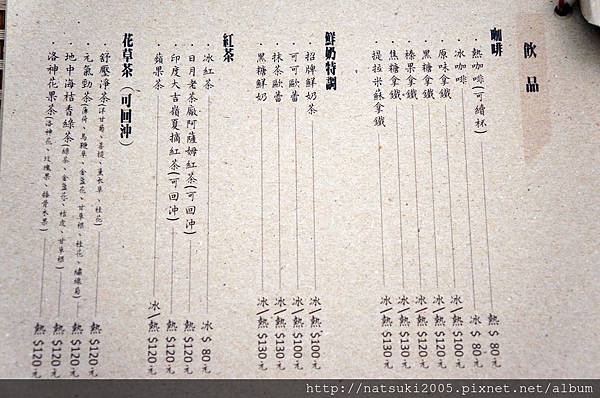 飲品
咖啡
熱咖啡(可續杯) 熱 $ 80元
冰咖啡 冰 $ 80元
原味拿鐵 冰\熱 $100元
黑糖拿鐵 冰\熱 $120元
榛果拿鐵 冰\熱 $120元
焦糖拿鐵 冰\熱 $130元
提拉米蘇拿鐵 冰\熱 $130元
鮮奶特調
招牌鮮奶茶 冰\熱 $100元
可可歐蕾 冰\熱 $100元
抹茶歐蕾 冰\熱 $130元
黑糖鮮奶 冰\熱 $130元
紅茶
冰紅茶 冰 $ 80元
日月老茶廠阿薩姆紅茶(可回沖) 熱 $120元
印度大吉嶺夏摘紅茶(可回沖) 熱 $120元
蘋果茶 冰\熱 $120元
花草茶(可回沖)
舒壓淨茶(洋甘菊、菩提、薰衣草、桂花) 熱 $120元
元氣勁茶(薄荷、馬鞭草、金盞花、甘草根、桂花、繡線菊) 熱 $120元
地中海桔香綠茶(綠茶、金盞花、桔皮、甘草根) 熱 $120元
洛神花果茶(洛神花、玫瑰果、接骨木果) 熱 $120元
http://natsuki2005.pixnet.net/album